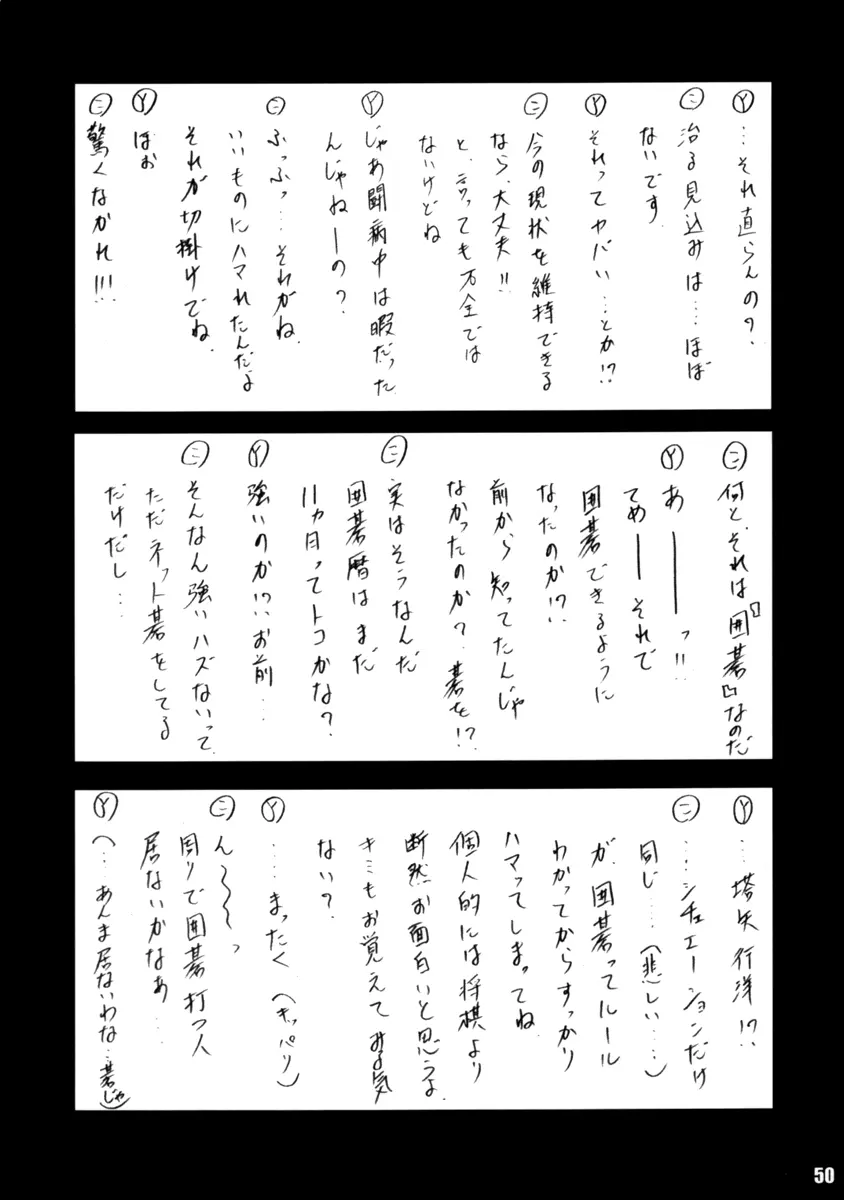 Ⓨ …それ直らんの?
㊁ 治る見込みは……ほぼ
ないです.
Ⓨ それってヤバい…とか!?
㊁ 今の現状を維持できる
なら、大丈夫!!
と、言っても万全では
ないけどね
Ⓨ じゃあ闘病中は暇だった
んじゃねーの?
㊁ ふっふっ…それがね.
いいものにハマれたんだよ
それが切掛けでね.
Ⓨ ほぉ
㊁ 驚くなかれ!!!
㊁ 何と、それは『囲碁』なのだ
Ⓨ あーーっ!!
てめーーそれで
囲碁できるように
なったのか!?
前から知ってたんじゃ
なかったのか?碁を!?
㊁ 実はそうなんだ
囲碁暦はまだ
11ヵ月ってトコかな?
Ⓨ 強いのか!?お前…
㊁ そんなん強いハズないって.
ただネット碁をしてる
だけだし…
Ⓨ …塔矢行洋!?
㊁ ……シチュエーションだけ
同じ……(悲しい……)
が、囲碁ってルール
わかってからすっかり
ハマってしまってね.
個人的には将棋より
断然お面白いと思うよ
キミもお覚えてみる気
ない?
Ⓨ ……まったく(キッパリ)
㊁ ん〜〜〜っ
周りで囲碁打つ人
居ないかなぁ…
Ⓨ (…あんま居ないわな…碁じゃ)
50